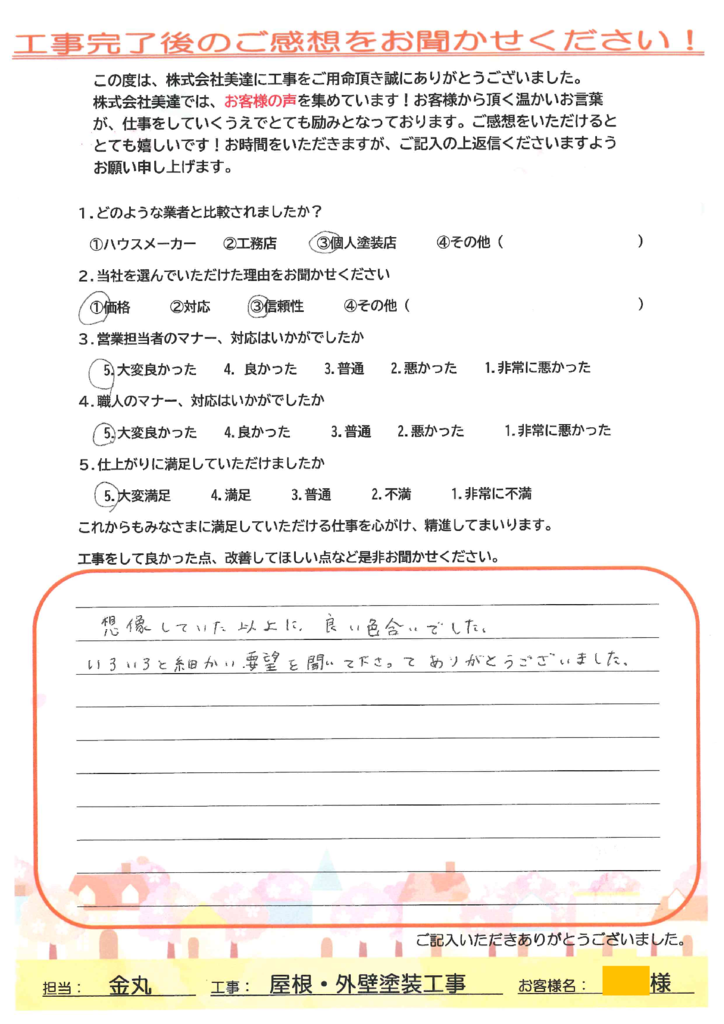 工事完了後のご感想をお聞かせください！
この度は、株式会社美達に工事をご用命頂き誠にありがとうございました。
株式会社美達では、お客様の声を集めています！お客様から頂く温かいお言葉
が、仕事をしていくうえでとても励みとなっております。ご感想をいただけると
とても嬉しいです！お時間をいただきますが、ご記入の上返信くださいますよう
お願い申し上げます。
１.どのような業者と比較されましたか？
①ハウスメーカー　②工務店　③個人塗装店　④その他（　）
２.当社を選んでいただけた理由をお聞かせください
①価格　②対応　③信頼性　④その他（　）
３.営業担当者のマナー、対応はいかがでしたか
5.大変良かった　4. 良かった　3.普通　2.悪かった　1.非常に悪かった
４.職人のマナー、対応はいかがでしたか
5.大変良かった　4.良かった　3.普通　2.悪かった　1.非常に悪かった
５.仕上がりに満足していただけましたか
5.大変満足　4.満足　3.普通　2.不満　1.非常に不満
これからもみなさまに満足していただける仕事を心がけ、精進してまいります。
工事をして良かった点、改善してほしい点など是非お聞かせください。
想像していた以上に、良い色合いでした。
いろいろと細かい要望を聞いて下さってありがとうございました。
ご記入いただきありがとうございました。
担当：　金丸　工事：　屋根・外壁塗装工事　お客様名：　様